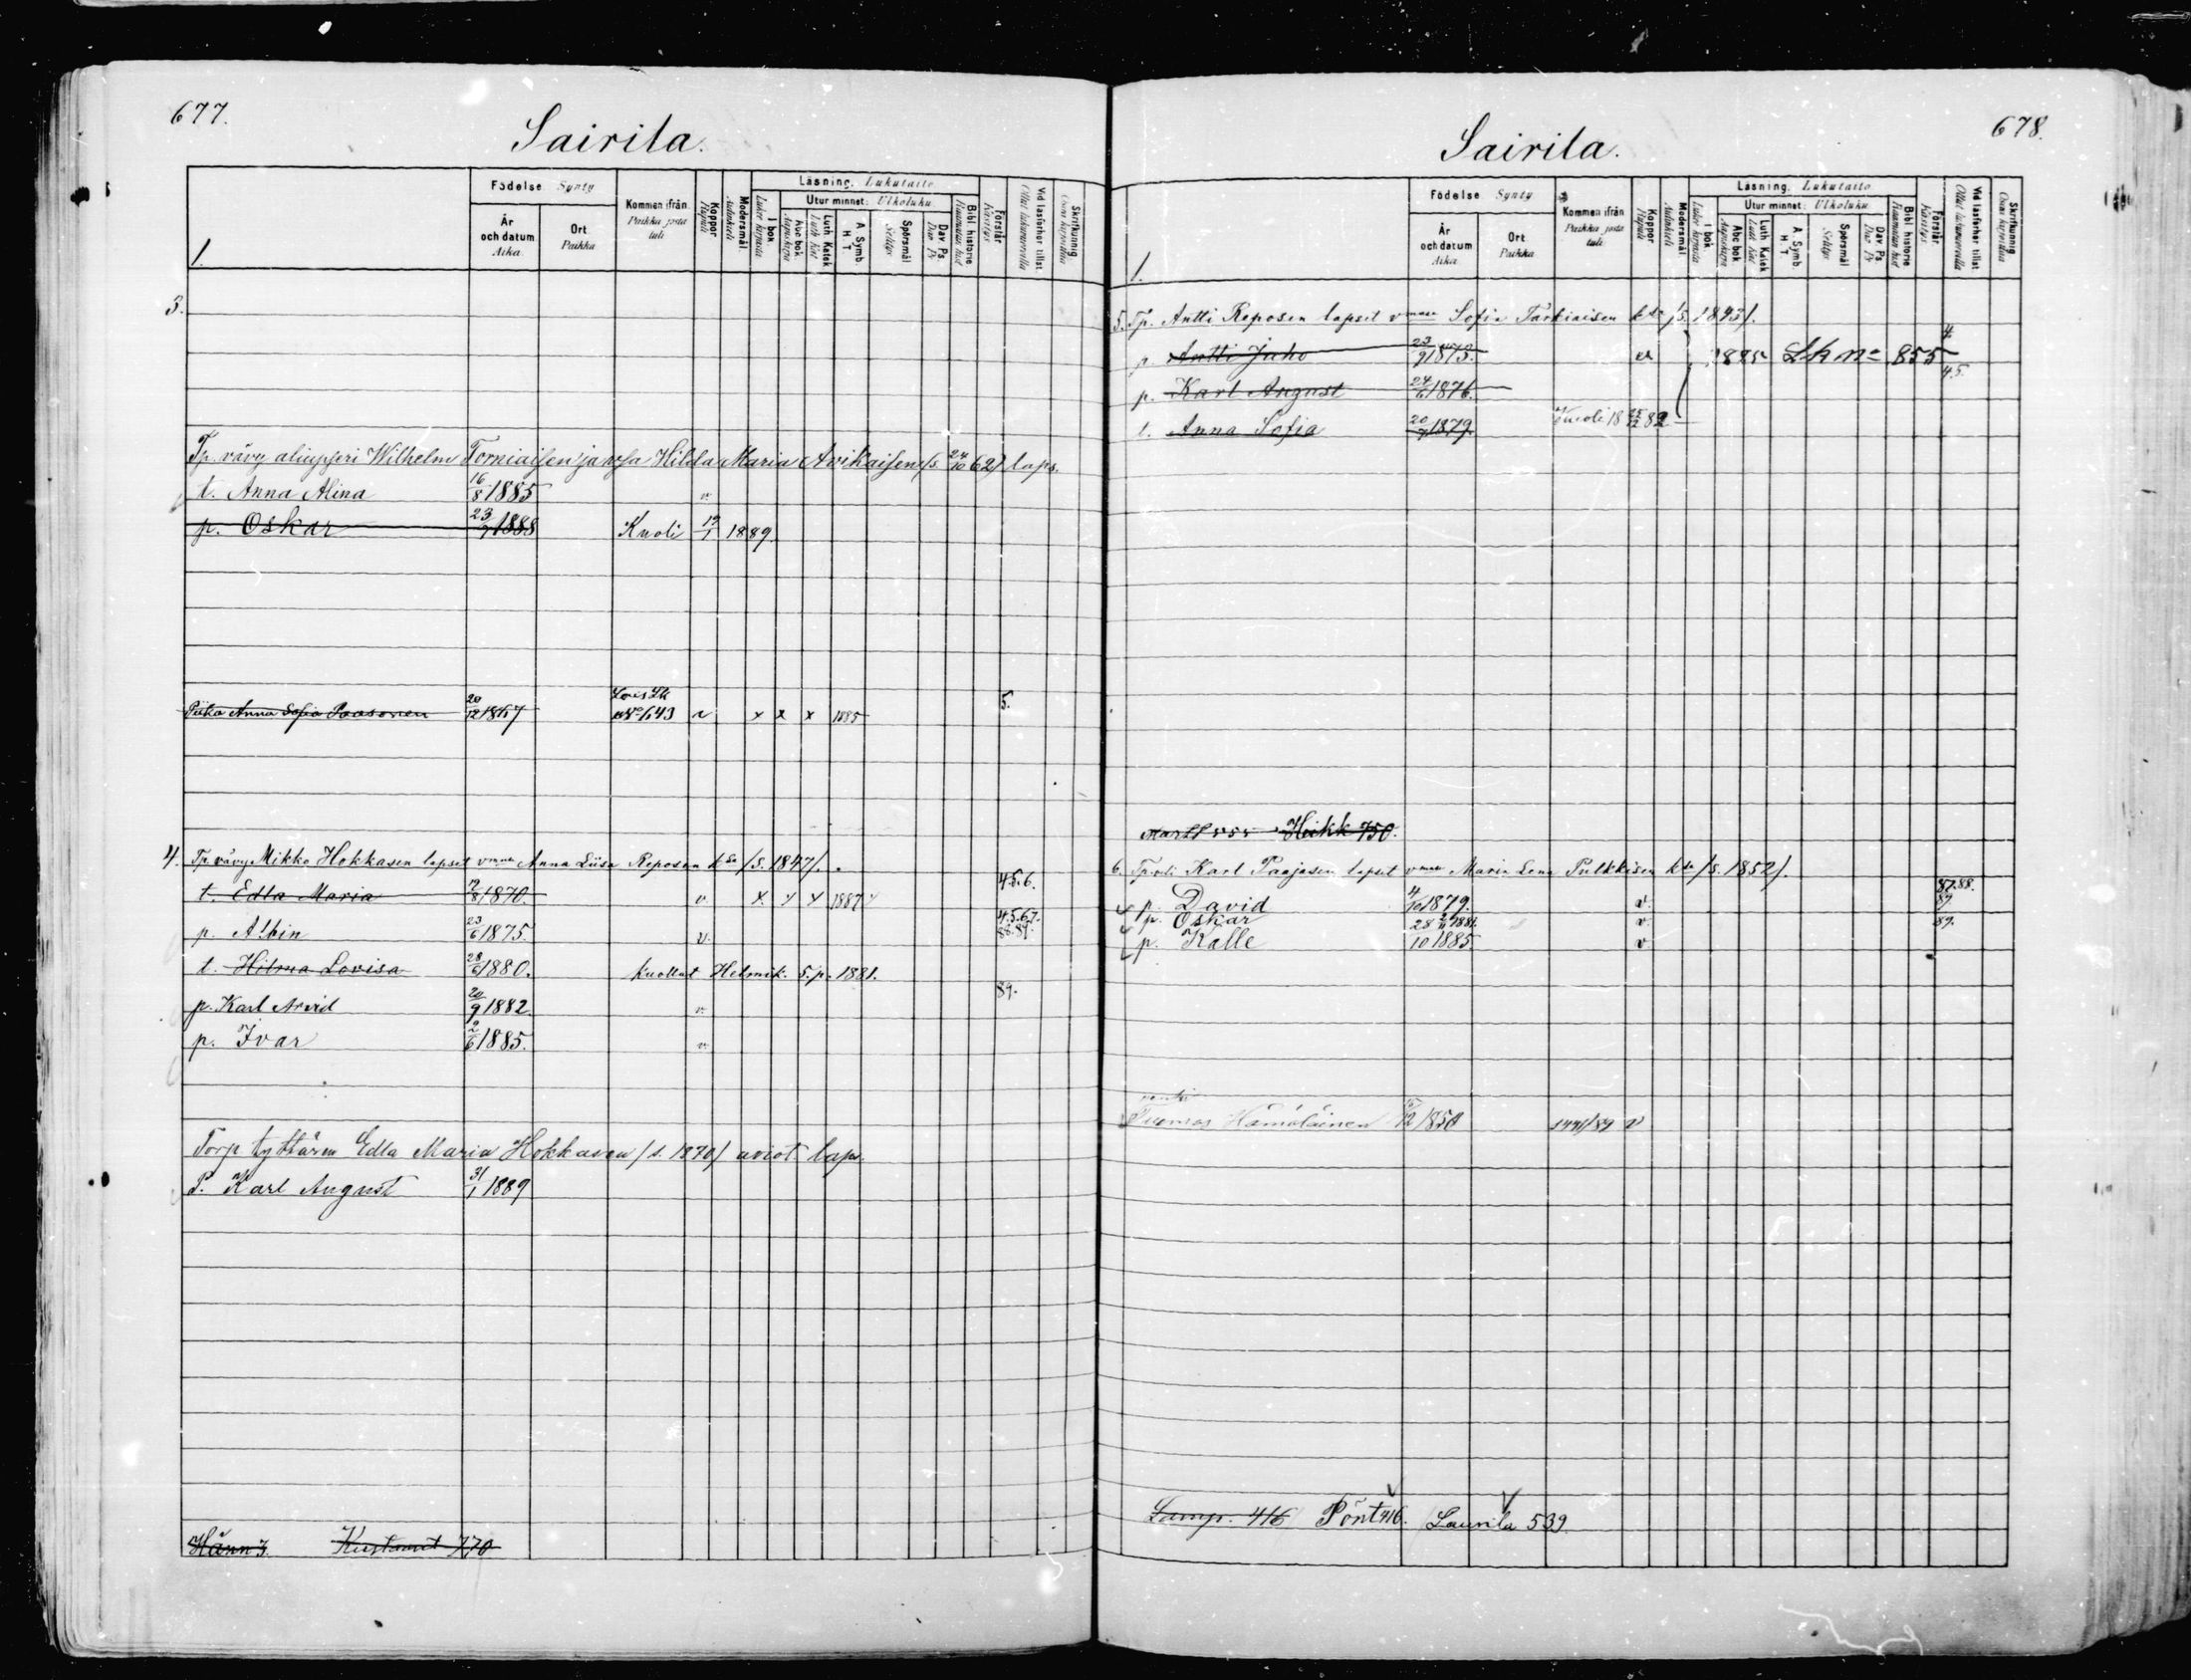 677.
Sairila.
1.
Födelse. Synty
År och datum Aika
Ort Paikka
Kommen ifrån. Paikka josta tuli
Koppor Rupuli
Modersmål. Äidinkieli
Läsning. Lukutaito
I bok. Lukee kirjasta
Utur minnet: Ulkoluku.
Abc bok. Aapiskirja
Luth. Katek Luth. Kat.
A. Symb. H. T.
Spörsmål Selitys
Dav. Ps. Dav. Ps
Bibl. historie Raamatun hist
Förstår Käsitys
Vid läsförhör tillst Ollut lukuluvuilla
Skrifkunnig
3.
Tp. vävy aliupseri Wilhelm Torniaisen ja vsa Hilda Maria Avikaisen (s. 24/10 62) laps.
t. Anna Alina 16/8 1885 v.
p. Oskar 23/7 1888 Kuoli 19/1 1889.
Piika Anna Sofia Paasonen 20/12 1867 Lois Lk No 643 v x x x 1885 5.
4. Tp. vävy Mikko Hokkasen lapset vmon Anna Liisa Reposen kssa (s. 1847).
t. Edla Maria 19/8 1870. v. x. y y 1887 4.5.6.
p. Albin 23/6 1875. v. 4.5.6.7. 88.89.
t. Hilma Lovisa 28/6 1880. kuollut Helmik. 5. p. 1881.
p. Karl Arvid 20/9 1882. v. 89.
p. Ivar 2/6 1885. v.
Torp. tyttären Edla Maria Hokkasen (s. 1870) aviot. laps.
P. Karl August 31/1 1889
Hänn 3. Kustannt 770
678.
Sairila.
1.
Födelse Synty
År och datum Aika
Ort Paikka
Kommen ifrån Paikka josta tuli
Koppor Rupuli
Modersmål Äidinkieli
Läsning. Lukutaito
I bok. Lukee kirjasta
Utur minnet: Ulkoluku
Abc bok Aapiskirja
Luth. Katek Luth. Kat
A. Symb. H. T
Spörsmål Selitys
Dav. Ps Dav. Ps
Bibl. historie Raamatun hist
Förstår Käsitys
Vid läsförhör tillst Ollut lukuluvuilla
Skrifkunnig
5. Tp. Antti Reposen lapset vmon Sofia Tarkiaisen kssa (s. 1843).
p. Antti Juho 23/9 1873. 1885 Lk No 855 4
p. Karl August 24/6 1876. 4.5.
t. Anna Sofia 20/7 1879. Kuoli 18 25/12 82
Heikk 750.
6. Tp. oli Karl Paajasen lapset vmon Maria Lena Pulkkisen kssa (s. 1852).
p. David 4/10 1879. v. 87.88. 89.
p. Oskar 1881. v. 89.
p. Kalle 28/10 1885. v
Tuomas Hämäläinen 15/12 1850 1441/89 v
Lamp. 416 Pönt 416. Laurila 539.